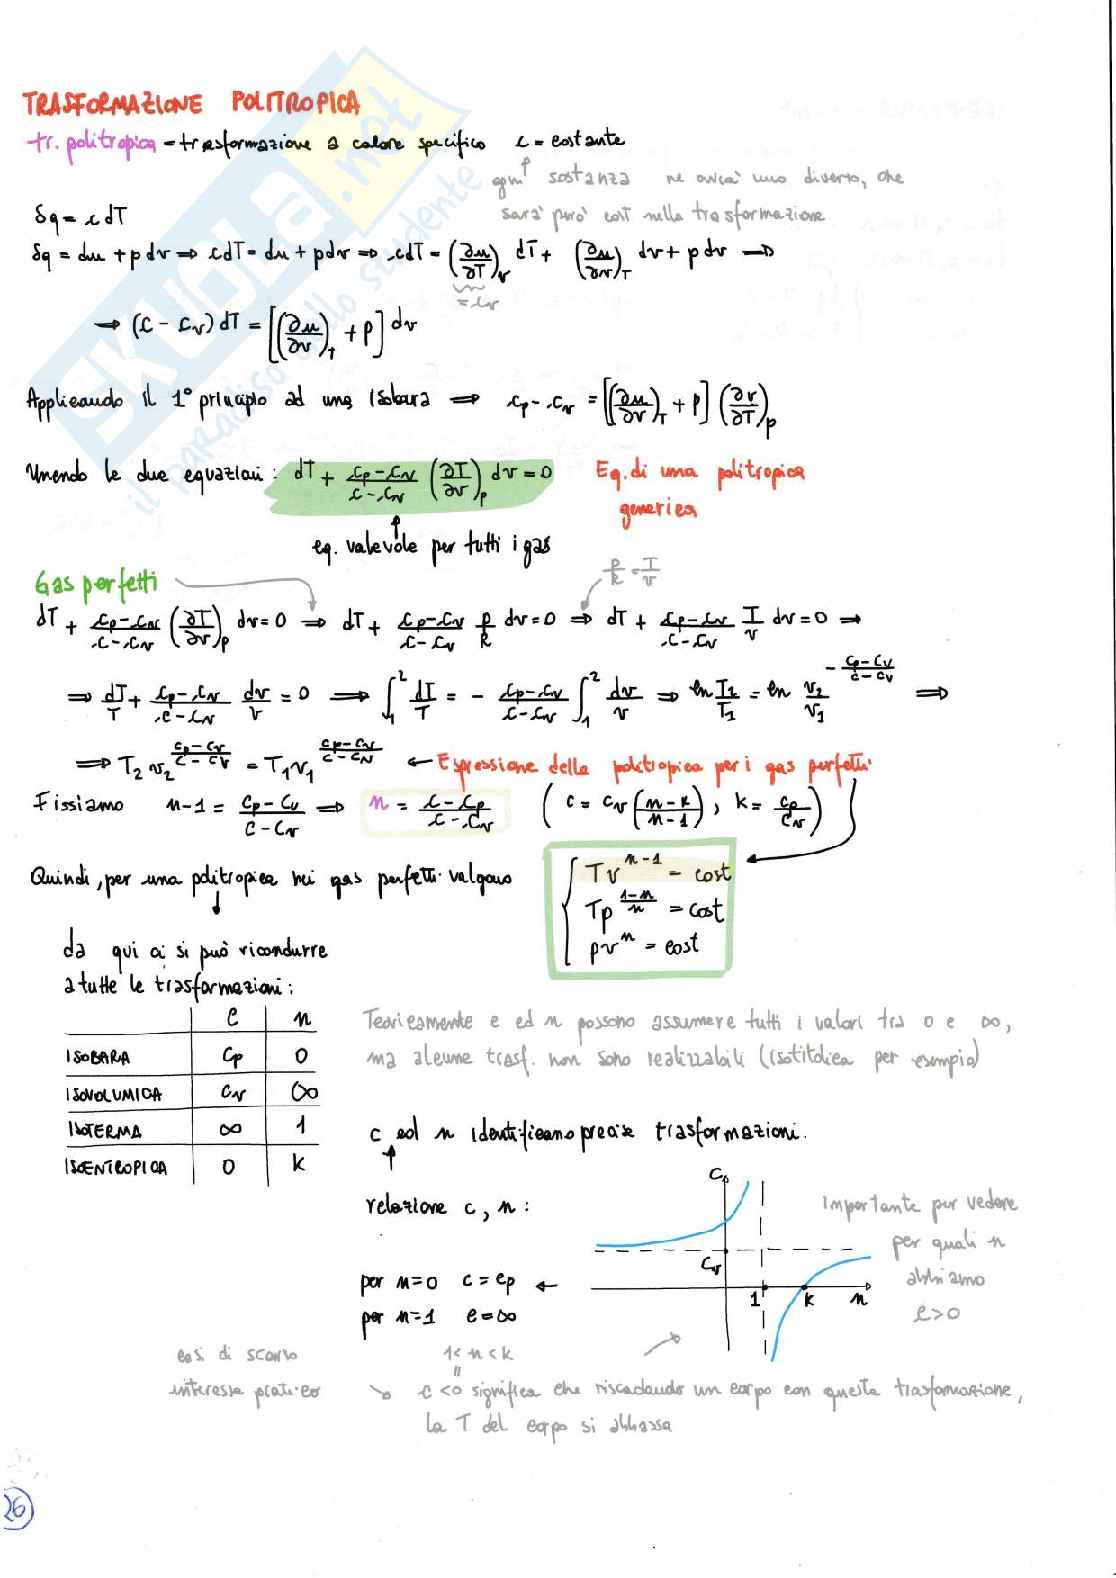 TRASFORMAZIONE POLITROPICA
tr. politropica = trasformazione a calore specifico c = costante
ogni sostanza ne avrà uno diverso, che
sarà però cost nella trasformazione
δq = c dT
δq = du + p dv ⇒ c dT = du + p dv ⇒ c dT = (∂u/∂T)_v dT + (∂u/∂v)_T dv + p dv ⇒
= c_v
⇒ (c - c_v) dT = [(∂u/∂v)_T + p] dv
Applicando il 1° principio ad una isobara ⇒ c_p - c_v = [(∂u/∂v)_T + p] (∂v/∂T)_p
Unendo le due equazioni: dT + (c_p - c_v)/(c - c_v) (∂T/∂v)_p dv = 0 Eq. di una politropica
generica
eq. valevole per tutti i gas
Gas perfetti
p/R = T/v
dT + (c_p - c_v)/(c - c_v) (∂T/∂v)_p dv = 0 ⇒ dT + (c_p - c_v)/(c - c_v) p/R dv = 0 ⇒ dT + (c_p - c_v)/(c - c_v) T/v dv = 0 ⇒
⇒ dT/T + (c_p - c_v)/(c - c_v) dv/v = 0 ⇒ ∫₁² dT/T = - (c_p - c_v)/(c - c_v) ∫₁² dv/v ⇒ ln T₂/T₁ = ln v₂/v₁ ^(-(c_p - c_v)/(c - c_v)) ⇒
⇒ T₂ v₂^((c_p - c_v)/(c - c_v)) = T₁ v₁^((c_p - c_v)/(c - c_v)) ← Espressione della politropica per i gas perfetti
Fissiamo n-1 = (c_p - c_v)/(c - c_v) ⇒ n = (c - c_p)/(c - c_v) ( c = c_v ((n-k)/(n-1)), k = c_p/c_v )
Quindi, per una politropica nei gas perfetti valgono
T v^(n-1) = cost
T p^((1-n)/n) = cost
p v^n = cost
da qui ci si può ricondurre
a tutte le trasformazioni:
c n
ISOBARA c_p 0
ISOVOLUMICA c_v ∞
ISOTERMA ∞ 1
ISOENTROPICA 0 k
Teoricamente c ed n possono assumere tutti i valori tra 0 e ∞,
ma alcune trasf. non sono realizzabili (isotitolica per esempio)
c ed n identificano precise trasformazioni.
relazione c, n:
per n=0 c = c_p ←
per n=1 c = ∞
c
c_v
1 k n
Importante per vedere
per quali n
abbiamo
c>0
casi di scarso
interesse pratico
1<n<k
=
c<0 significa che riscaldando un corpo con questa trasformazione,
la T del corpo si abbassa
26
SKUOLA.net
il paradiso dello studente